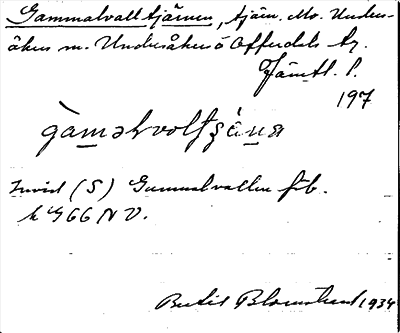 Gammalvalltjärnen, tjärn. Mo. Under-
åkers m. Undersåkers o Offerdals tg.
Jämtl. l.
197
gàməlvoltʂä́ɳa
Invid (S) Gammalvallen fäb.
k G66 NV.
Bertil Blomstrand 1934